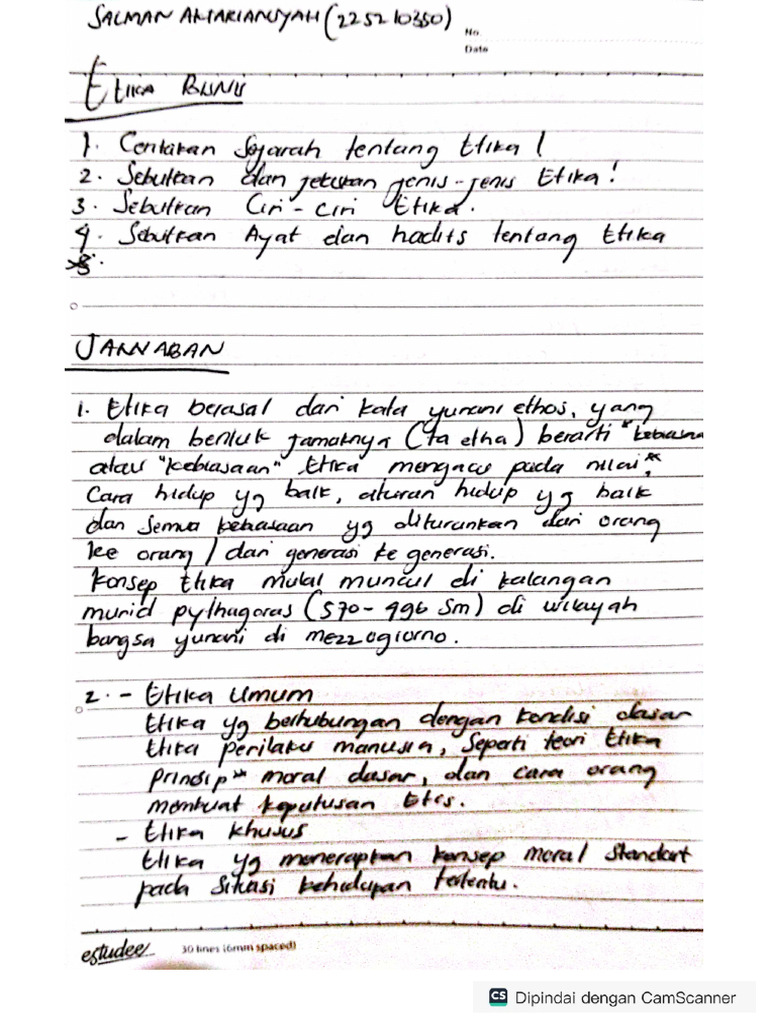 SALMAN AKTARIANSYAH (225210350)
No
Date
ETIKA BISNIS
1. Ceritakan Sejarah tentang Etika !
2. Sebutkan dan jelaskan jenis-jenis Etika !
3. Sebutkan Ciri-ciri Etika.
4. Sebutkan Ayat dan hadits tentang Etika
5.
JAWABAN
1. Etika berasal dari kata yunani ethos, yang
dalam bentuk jamaknya (ta etha) berarti "kebiasaan
atau "kebiasaan" Etika mengacu pada nilai",
Cara hidup yg baik, aturan hidup yg baik
dan semua kebiasaan yg diturunkan dari orang
ke orang / dari generasi ke generasi.
Konsep Etika mulai muncul di kalangan
murid pythagoras (570-496 Sm) di wilayah
bangsa yunani di mezzogiorno.
2. - Etika Umum
Etika yg berhubungan dengan kondisi dasar
Etika perilaku manusia, Seperti teori Etika
Prinsip" moral dasar, dan cara orang
membuat keputusan Etis.
- Etika Khusus
Etika yg menerapkan konsep moral Standart
pada Situasi kehidupan tertentu.
estudee 30 lines (6mm spaced)
CS Dipindai dengan CamScanner